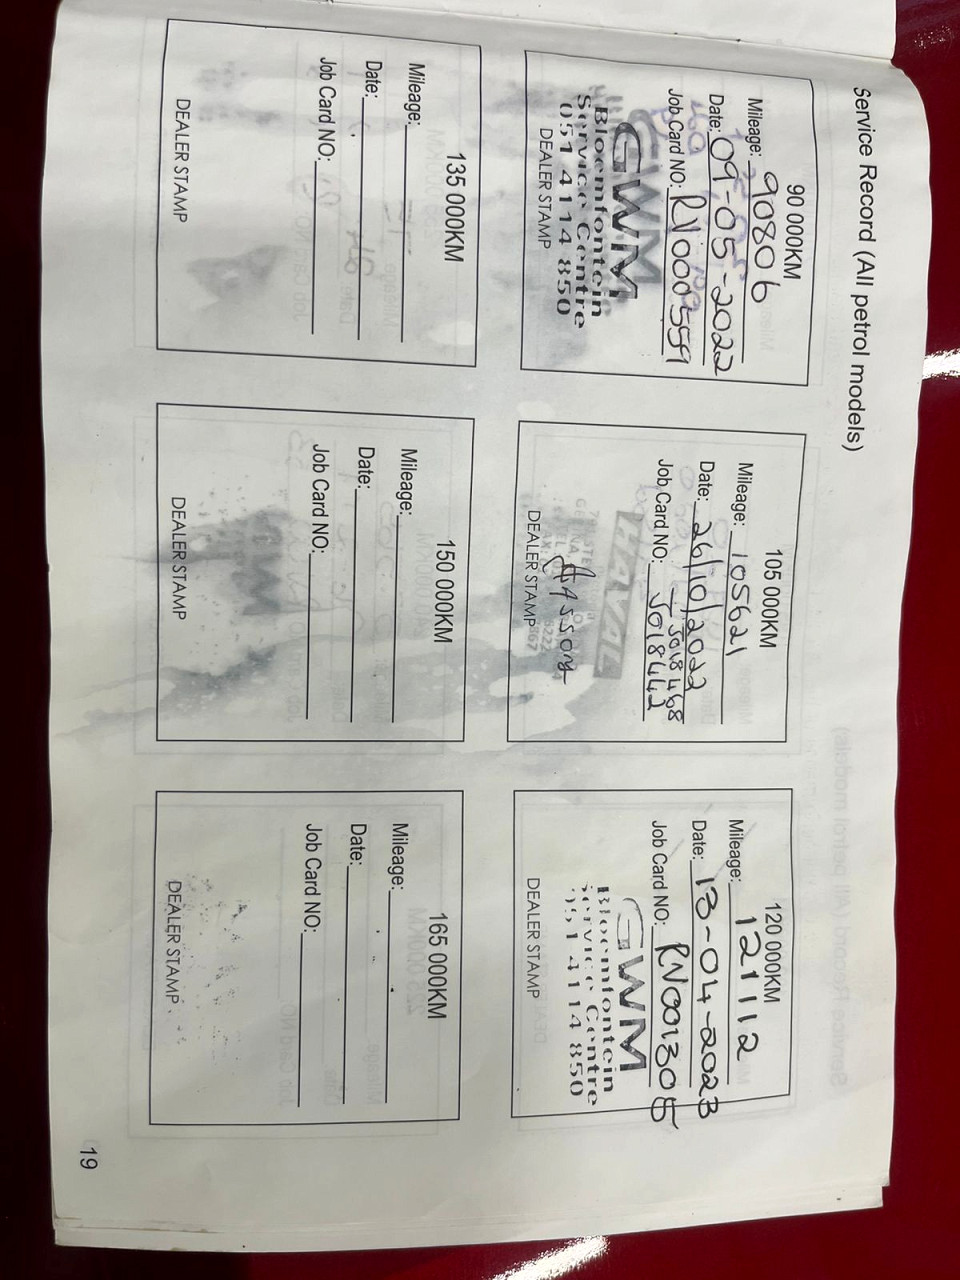 Service Record (All petrol models)
90 000KM
Mileage: 90806
Date: 09-05-2022
Job Card NO: RN000559
GWM
Bloemfontein
Service Centre
051 4114 850
DEALER STAMP
105 000KM
Mileage: 105621
Date: 26/10/2022
JO18468
Job Card NO: JO18442
HAVAL
DEALER STAMP
120 000KM
Mileage: 121112
Date: 13-04-2023
Job Card NO: RN001305
GWM
Bloemfontein
Service Centre
051 4114 850
DEALER STAMP
135 000KM
Mileage:
Date:
Job Card NO:
DEALER STAMP
150 000KM
Mileage:
Date:
Job Card NO:
DEALER STAMP
165 000KM
Mileage:
Date:
Job Card NO:
DEALER STAMP
19